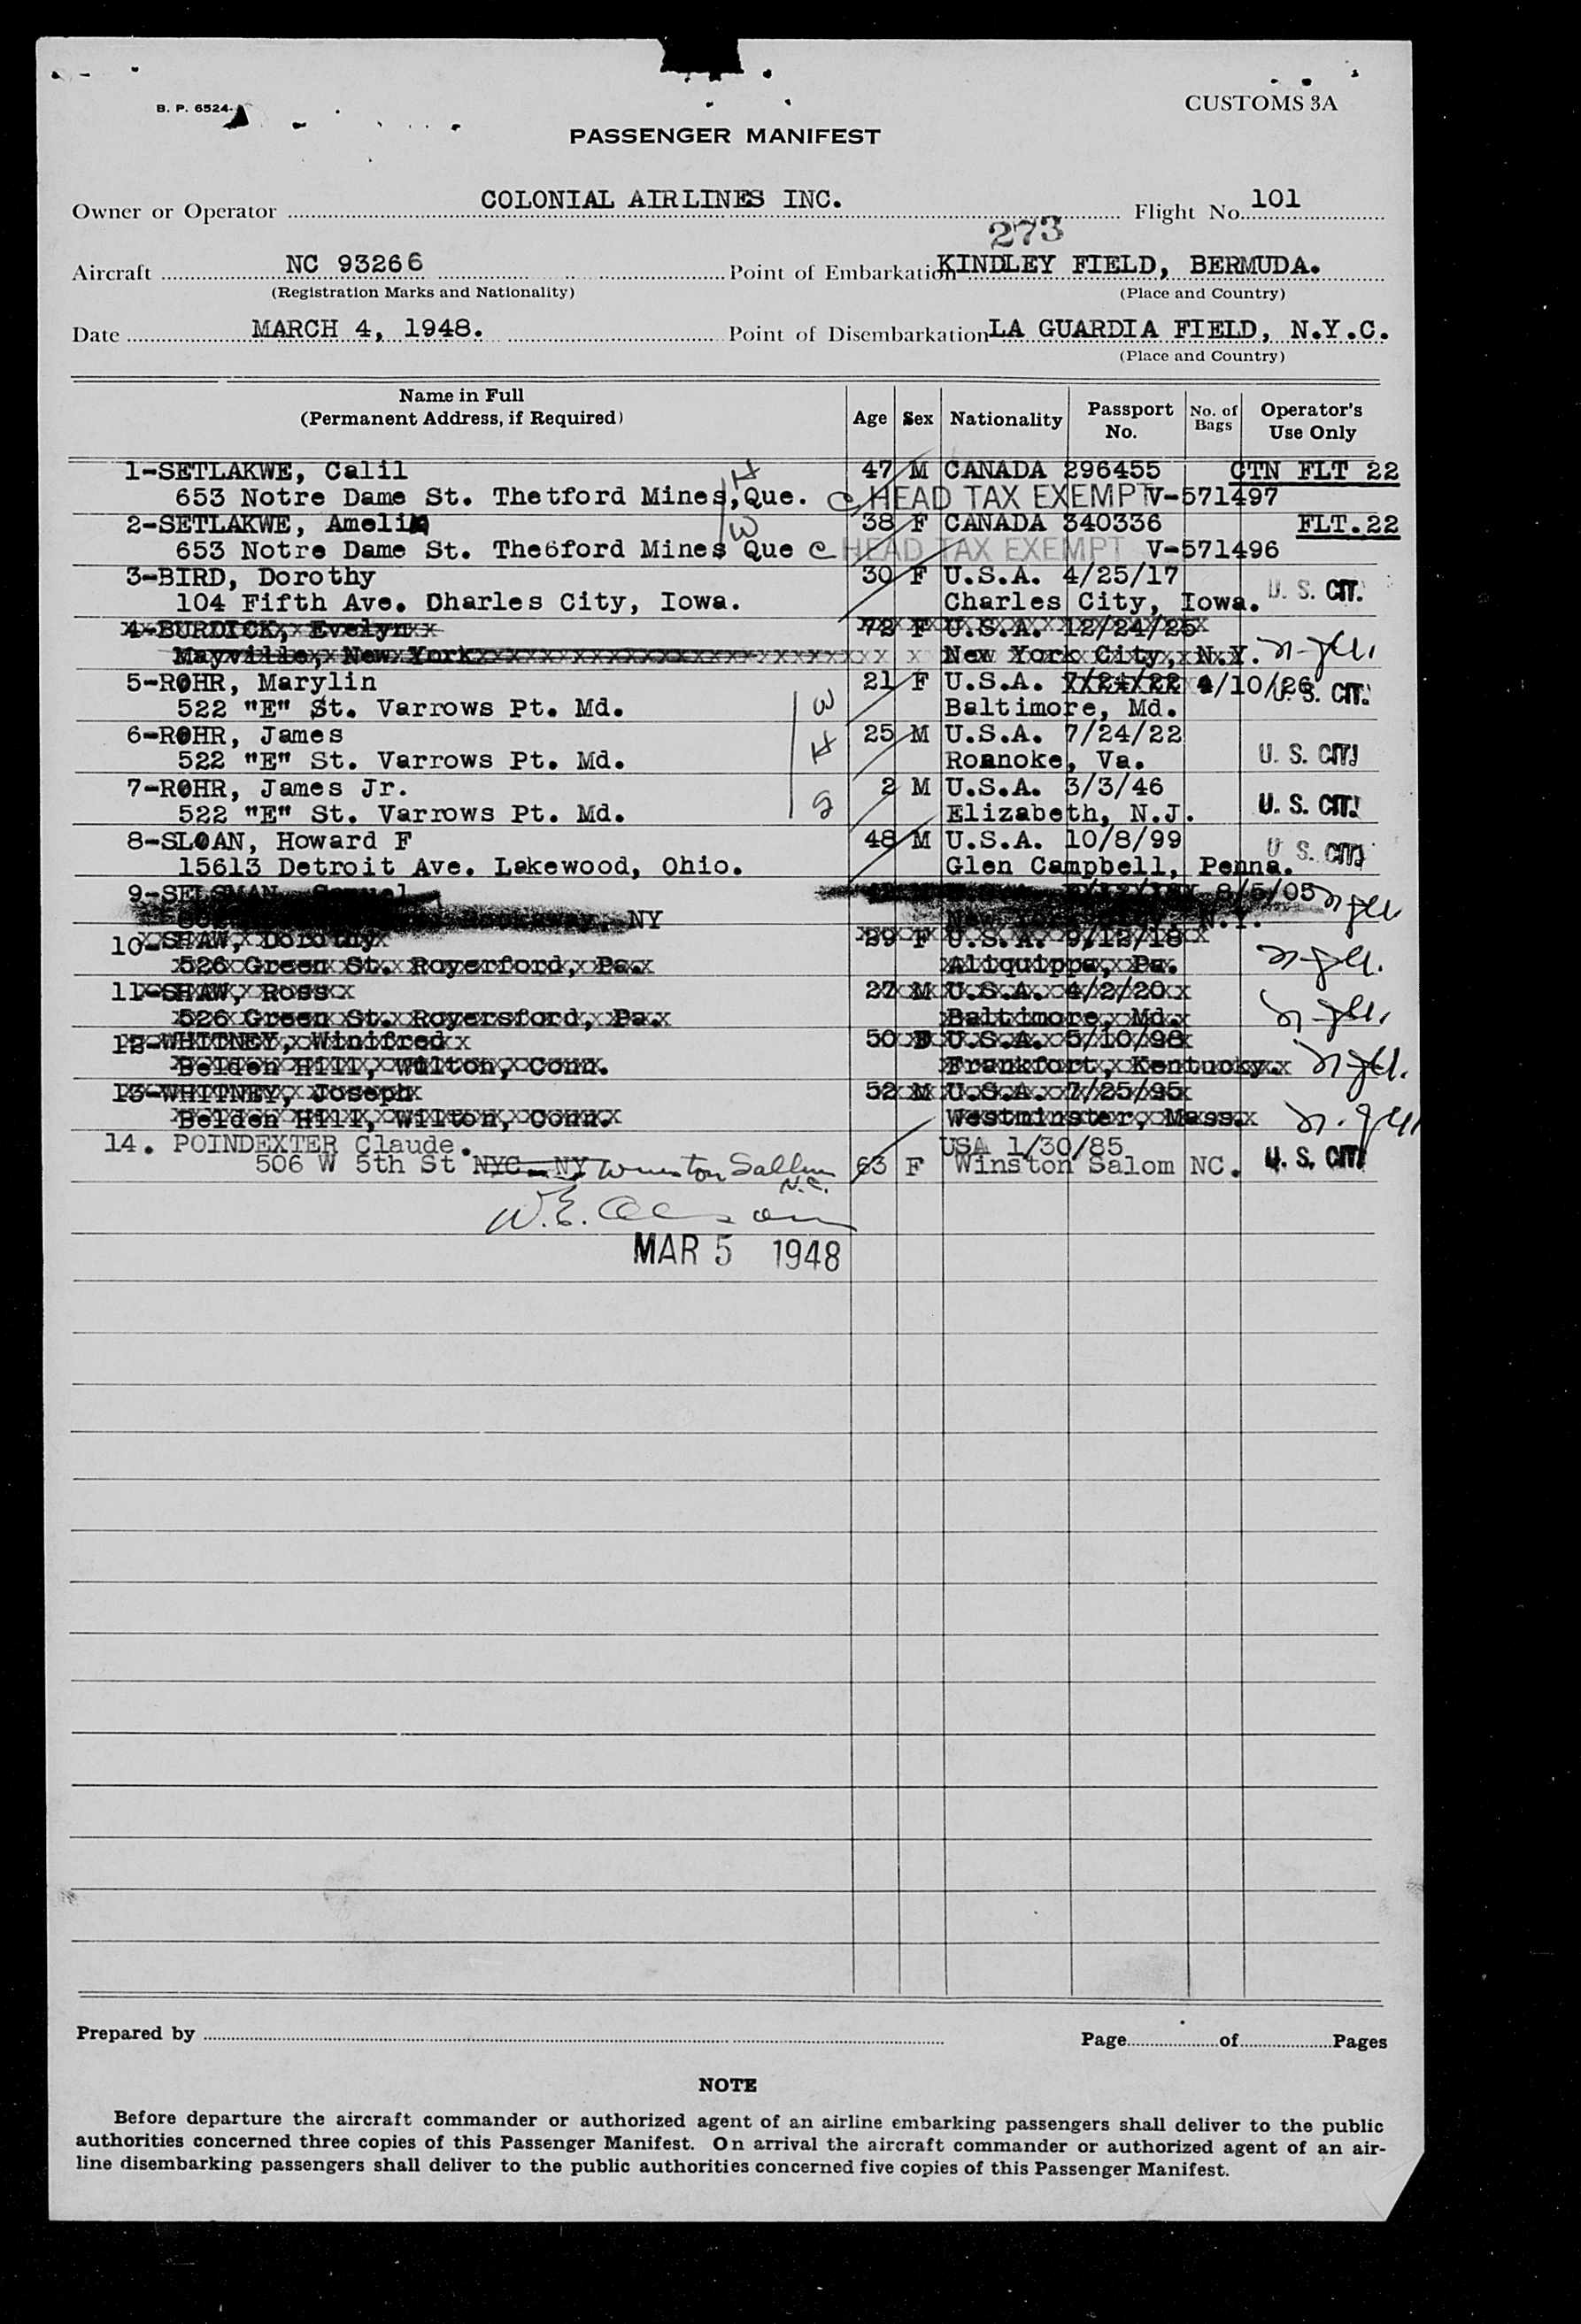 B. P. 6524-
CUSTOMS 3A
PASSENGER MANIFEST
Owner or Operator COLONIAL AIRLINES INC. Flight No. 101
273
Aircraft NC 93266 Point of Embarkation KINDLEY FIELD, BERMUDA.
(Registration Marks and Nationality) (Place and Country)
Date MARCH 4, 1948. Point of Disembarkation LA GUARDIA FIELD, N.Y.C.
(Place and Country)
Name in Full (Permanent Address, if Required) Age Sex Nationality Passport No. No. of Bags Operator's Use Only
1-SETLAKWE, Calil H 47 M CANADA 296455 CTN FLT 22
653 Notre Dame St. Thetford Mines, Que. C HEAD TAX EXEMPT V-571497
2-SETLAKWE, Amelia W 38 F CANADA 340336 FLT.22
653 Notre Dame St. The6ford Mines Que C HEAD TAX EXEMPT V-571496
3-BIRD, Dorothy 30 F U.S.A. 4/25/17 U. S. CIT.
104 Fifth Ave. Dharles City, Iowa. Charles City, Iowa.
4-BURDICK, Evelyn 72 F U.S.A. 12/24/25
Mayville, New York New York City, N.Y.
5-ROHR, Marylin 21 F U.S.A. 7/24/22 4/10/26 U. S. CIT.
522 "E" St. Varrows Pt. Md. W Baltimore, Md.
6-ROHR, James 25 M U.S.A. 7/24/22
522 "E" St. Varrows Pt. Md. H Roanoke, Va. U. S. CIT.
7-ROHR, James Jr. 2 M U.S.A. 3/3/46
522 "E" St. Varrows Pt. Md. S Elizabeth, N.J. U. S. CIT.
8-SLOAN, Howard F 48 M U.S.A. 10/8/99 U S. CIT.
15613 Detroit Ave. Lakewood, Ohio. Glen Campbell, Penna.
9-SELSMAN, Samuel 8/5/05
NY N.Y.
10-SHAW, Dorothy 29 F U.S.A. 9/12/18
526 Green St. Royerford, Pa. Aliquippa, Pa.
11-SHAW, Ross 27 M U.S.A. 4/2/20
526 Green St. Royersford, Pa. Baltimore, Md.
12-WHITNEY, Winifred 50 U.S.A. 5/10/98
Belden Hill, Wilton, Conn. Frankfort, Kentucky.
13-WHITNEY, Joseph 52 M U.S.A. 7/25/95
Belden Hill, Wilton, Conn. Westminster, Mass.
14. POINDEXTER Claude. USA 1/30/85
506 W 5th St NYC - NY Winston Sallem N.C. 63 F Winston Salom NC. U. S. CIT.
W.E.
MAR 5 1948
Prepared by Page of Pages
NOTE
Before departure the aircraft commander or authorized agent of an airline embarking passengers shall deliver to the public
authorities concerned three copies of this Passenger Manifest. On arrival the aircraft commander or authorized agent of an air-
line disembarking passengers shall deliver to the public authorities concerned five copies of this Passenger Manifest.